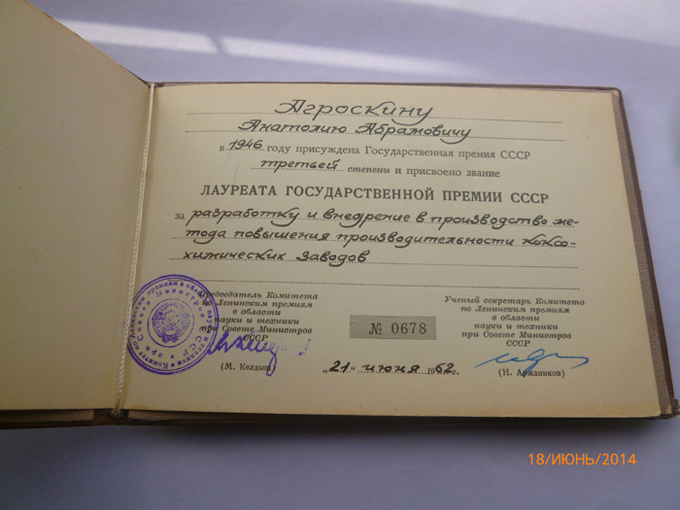 Агроскину
Анатолию Абрамовичу
в 1946 году присуждена Государственная премия СССР
третьей степени и присвоено звание
ЛАУРЕАТА ГОСУДАРСТВЕННОЙ ПРЕМИИ СССР
за разработку и внедрение в производство ме-
тода повышения производительности коксо-
химических заводов
Председатель Комитета
по Ленинским премиям
в области
науки и техники
при Совете Министров
СССР
(М. Келдыш)
№ 0678
„21“ июня 1962 г.
Ученый секретарь Комитета
по Ленинским премиям
в области
науки и техники
при Совете Министров
СССР
(Н. Аржаников)
Комитет по Ленинским премиям в области науки и техники
при Совете Министров СССР
18/ИЮНЬ/2014